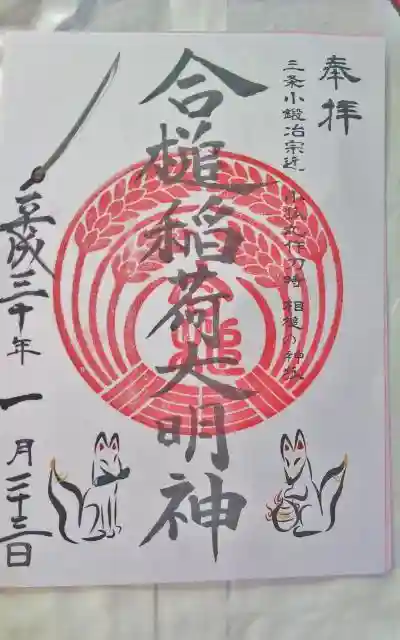 奉拝
三条小鍛冶宗近 小狐丸作刀時 相槌の神狐
合槌稲荷大明神
平成三十年一月二十三日